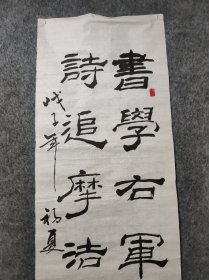 書學右軍
詩追摩詰
戊子年
初夏